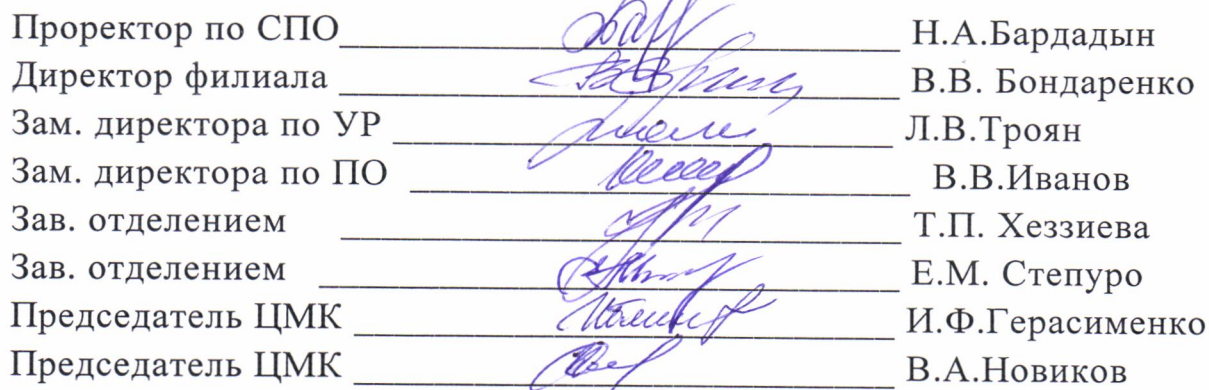 Проректор по СПО Н.А.Бардадын
Директор филиала В.В. Бондаренко
Зам. директора по УР Л.В.Троян
Зам. директора по ПО В.В.Иванов
Зав. отделением Т.П. Хеззиева
Зав. отделением Е.М. Степуро
Председатель ЦМК И.Ф.Герасименко
Председатель ЦМК В.А.Новиков